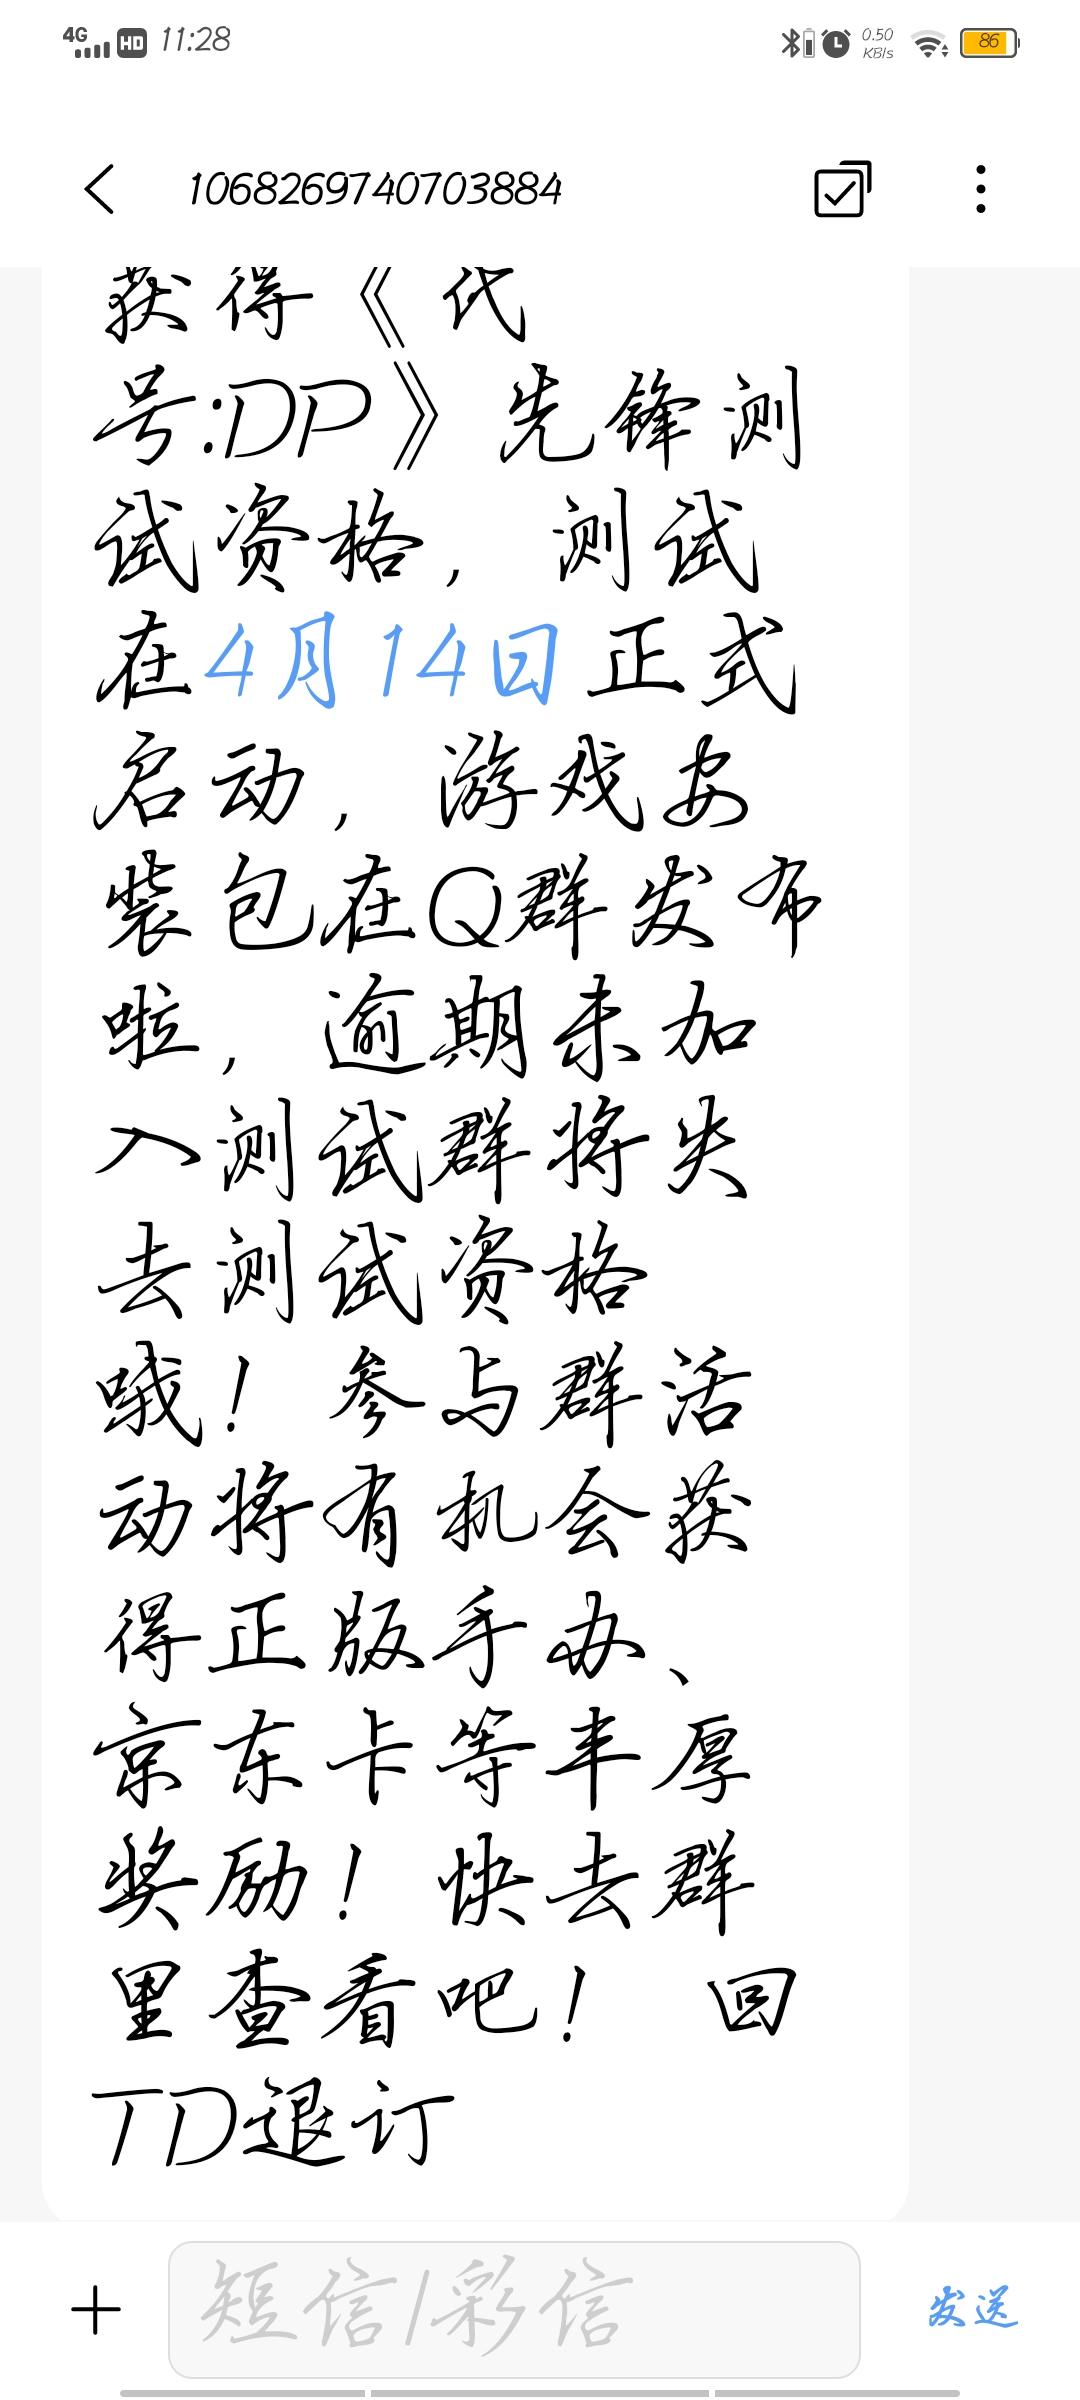 4G HD 11:28 0.50 KB/s 86
1068269740703884
获得《代
号:DP》先锋测
试资格，测试
在4月14日正式
启动，游戏安
装包在Q群发布
啦，逾期未加
入测试群将失
去测试资格
哦！参与群活
动将有机会获
得正版手办、
京东卡等丰厚
奖励！快去群
里查看吧！ 回
TD退订
短信/彩信
发送